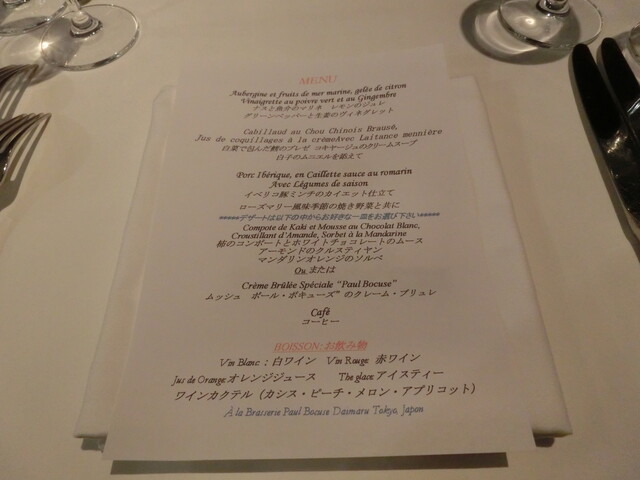 MENU
Aubergine et fruits de mer marine, gelée de citron
Vinaigrette au poivre vert et au Gingembre
ナスと魚介のマリネ レモンのジュレ
グリーンペッパーと生姜のヴィネグレット
Cabillaud au Chou Chinois Brausé,
Jus de coquillages à la crèmeAvec Laitance meunière
白菜で包んだ鱈のブレゼ コキヤージュのクリームスープ
白子のムニエルを添えて
Porc Ibérique, en Caillette sauce au romarin
Avec Légumes de saison
イベリコ豚ミンチのカイエット仕立て
ローズマリー風味季節の焼き野菜と共に
*****デザートは以下の中からお好きな一皿をお選び下さい*****
Compote de Kaki et Mousse au Chocolat Blanc,
Croustillant d'Amande, Sorbet à la Mandarine
柿のコンポートとホワイトチョコレートのムース
アーモンドのクルスティヤン
マンダリンオレンジのソルベ
Ou または
Crème Brûlée Spéciale "Paul Bocuse"
ムッシュ ポール・ボキューズ"のクレーム・ブリュレ
Café
コーヒー
BOISSON:お飲み物
Vin Blanc : 白ワイン Vin Rouge 赤ワイン
Jus de Orange オレンジジュース The glace アイスティー
ワインカクテル（カシス・ピーチ・メロン・アプリコット）
À la Brasserie Paul Bocuse Daimaru Tokyo, Japon